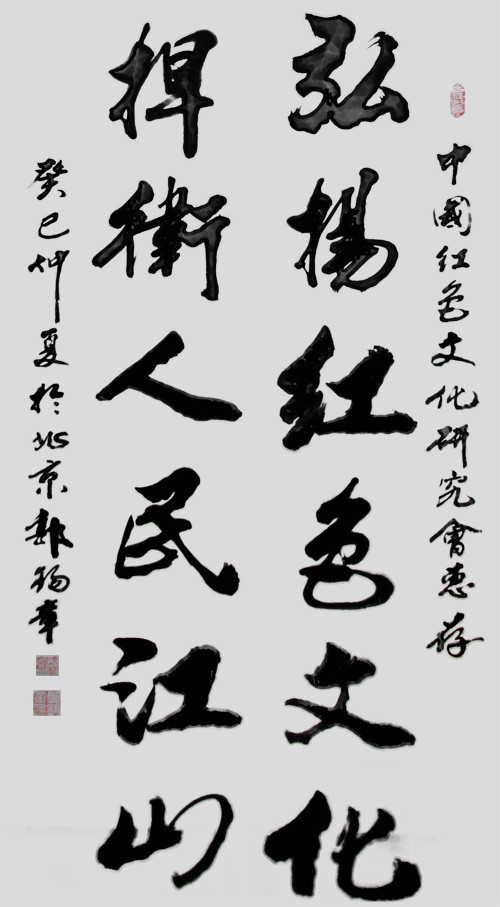 中國红色文化研究會惠存
弘揚红色文化
捍衛人民江山
癸巳仲夏於北京郝扬章